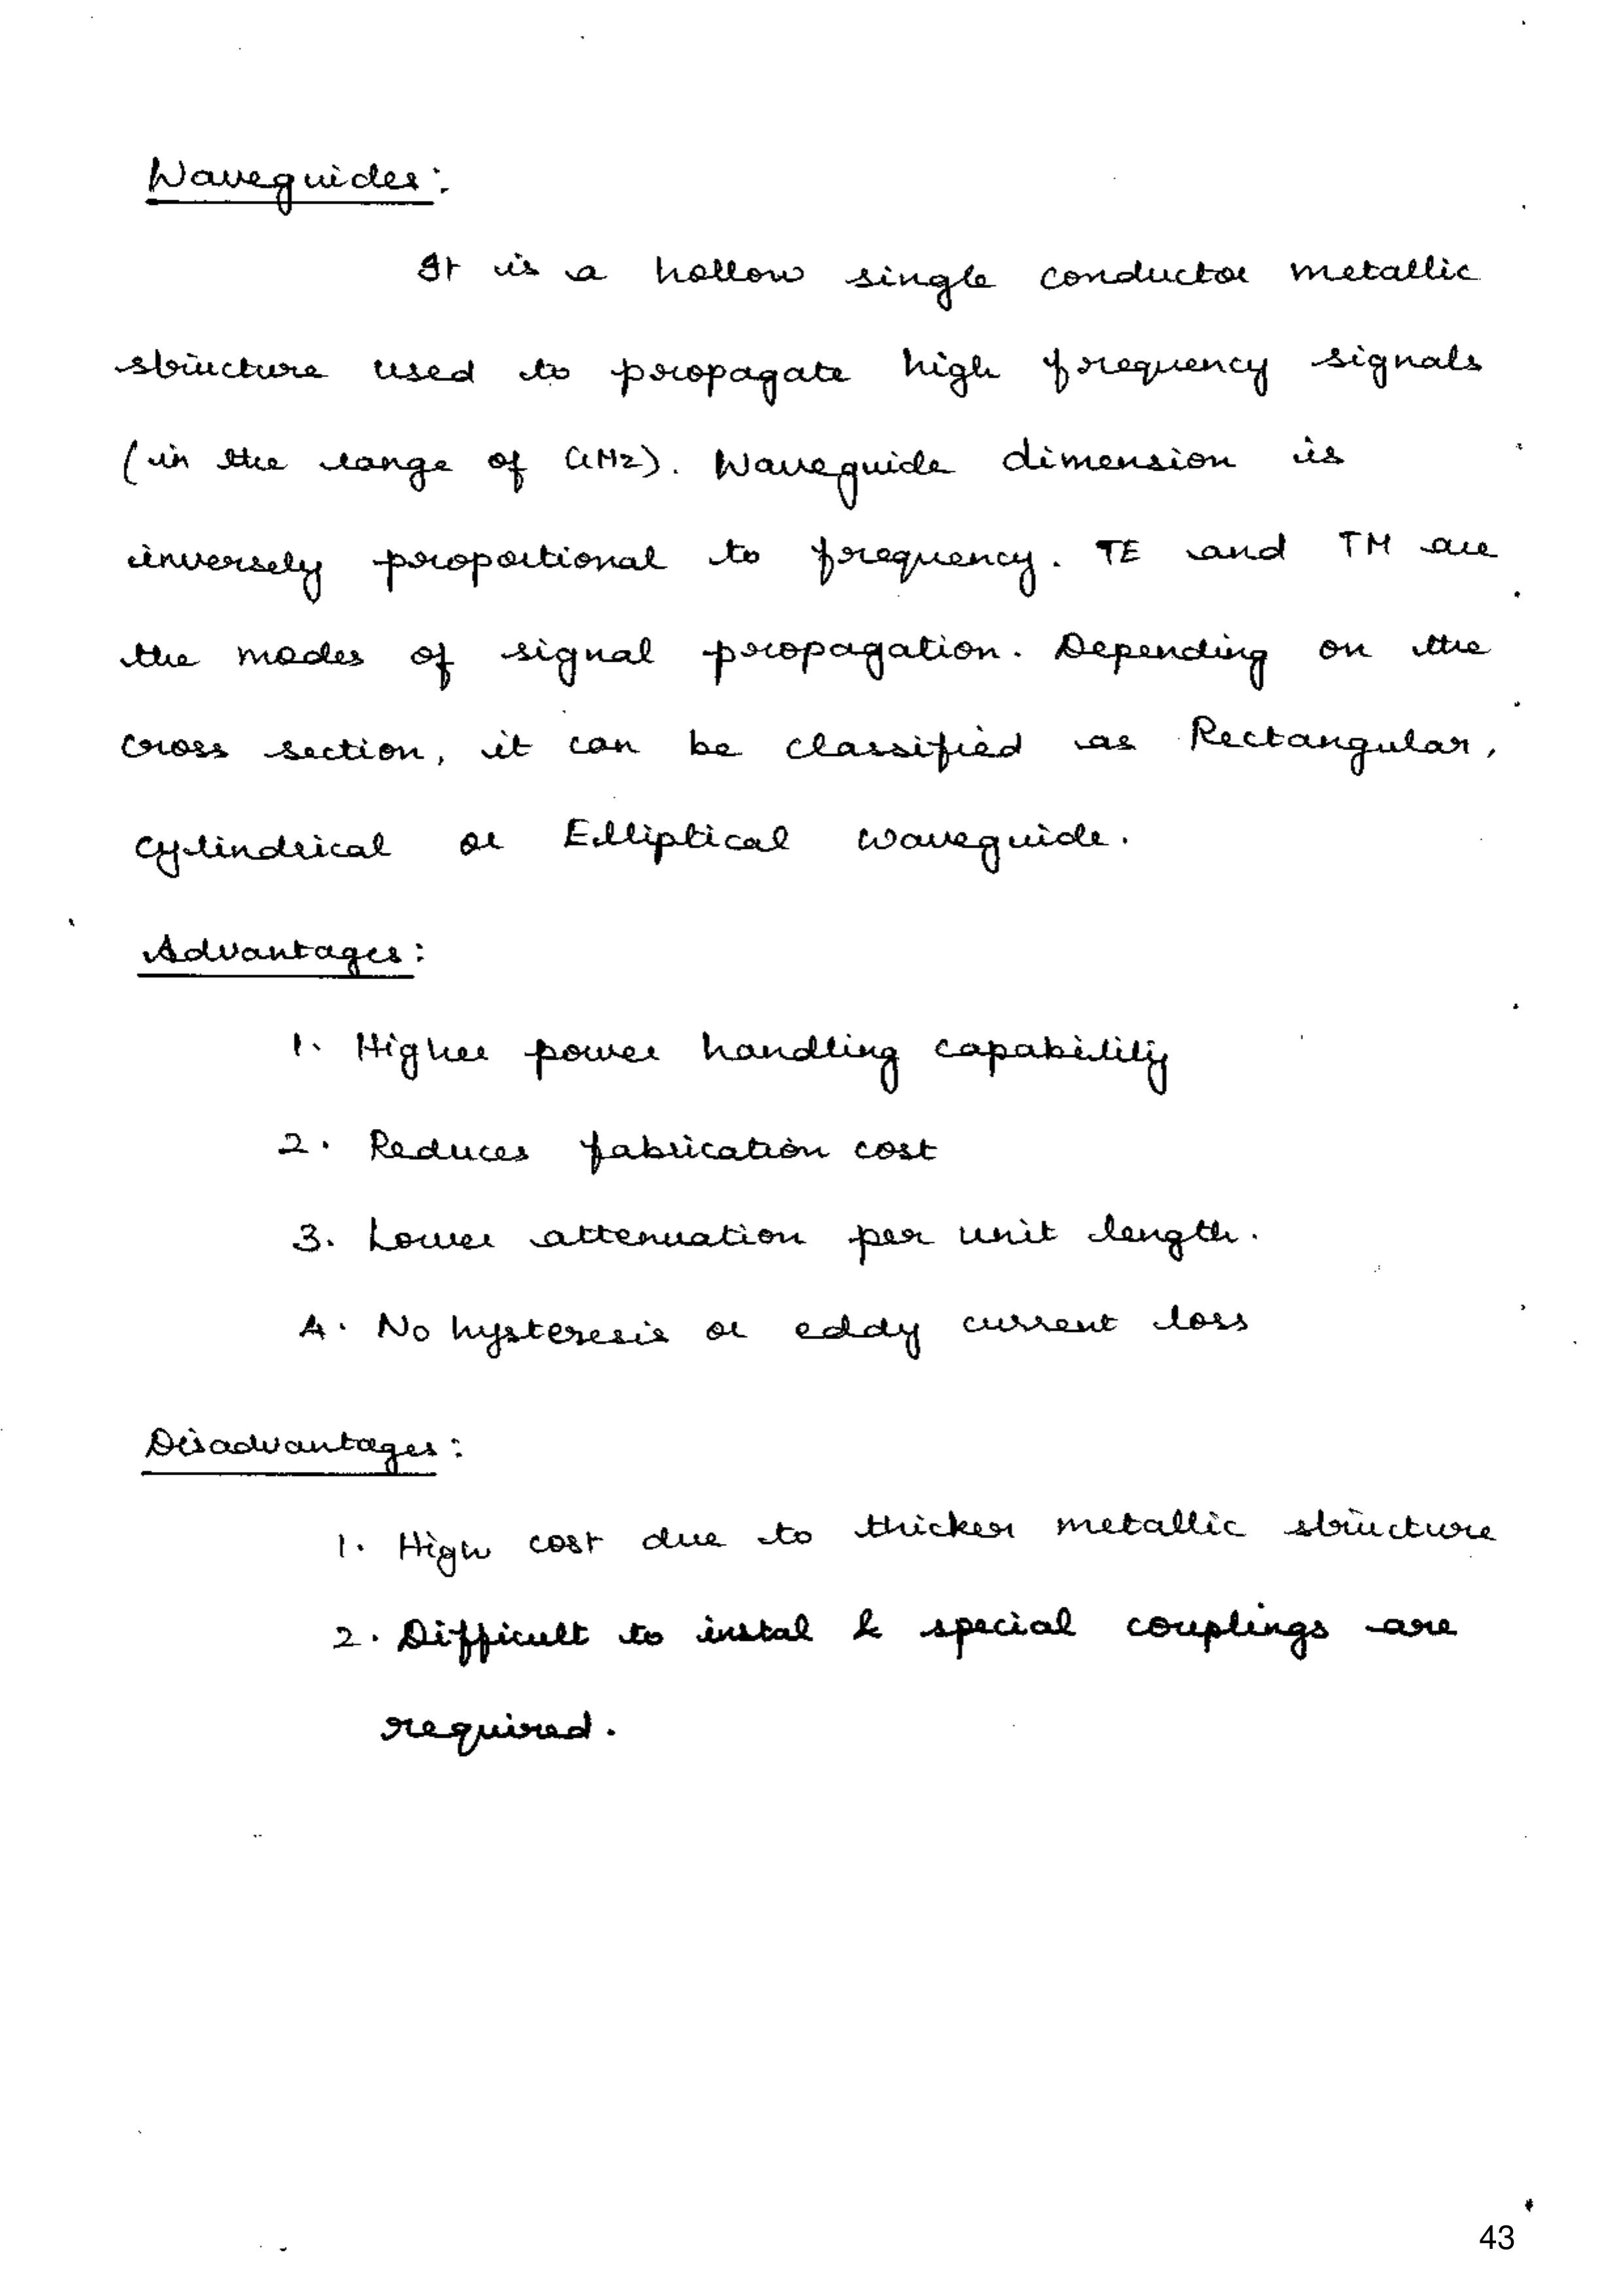 Waveguides:
It is a hollow single conductor metallic
structure used to propagate high frequency signals
(in the range of GHz). Waveguide dimension is
inversely proportional to frequency. TE and TM are
the modes of signal propagation. Depending on the
cross section, it can be classified as Rectangular,
cylindrical or Elliptical waveguide.
Advantages:
1. Higher power handling capability
2. Reduces fabrication cost
3. Lower attenuation per unit length.
4. No hysteresis or eddy current loss
Disadvantages:
1. High cost due to thicker metallic structure
2. Difficult to instal & special couplings are
required.
43